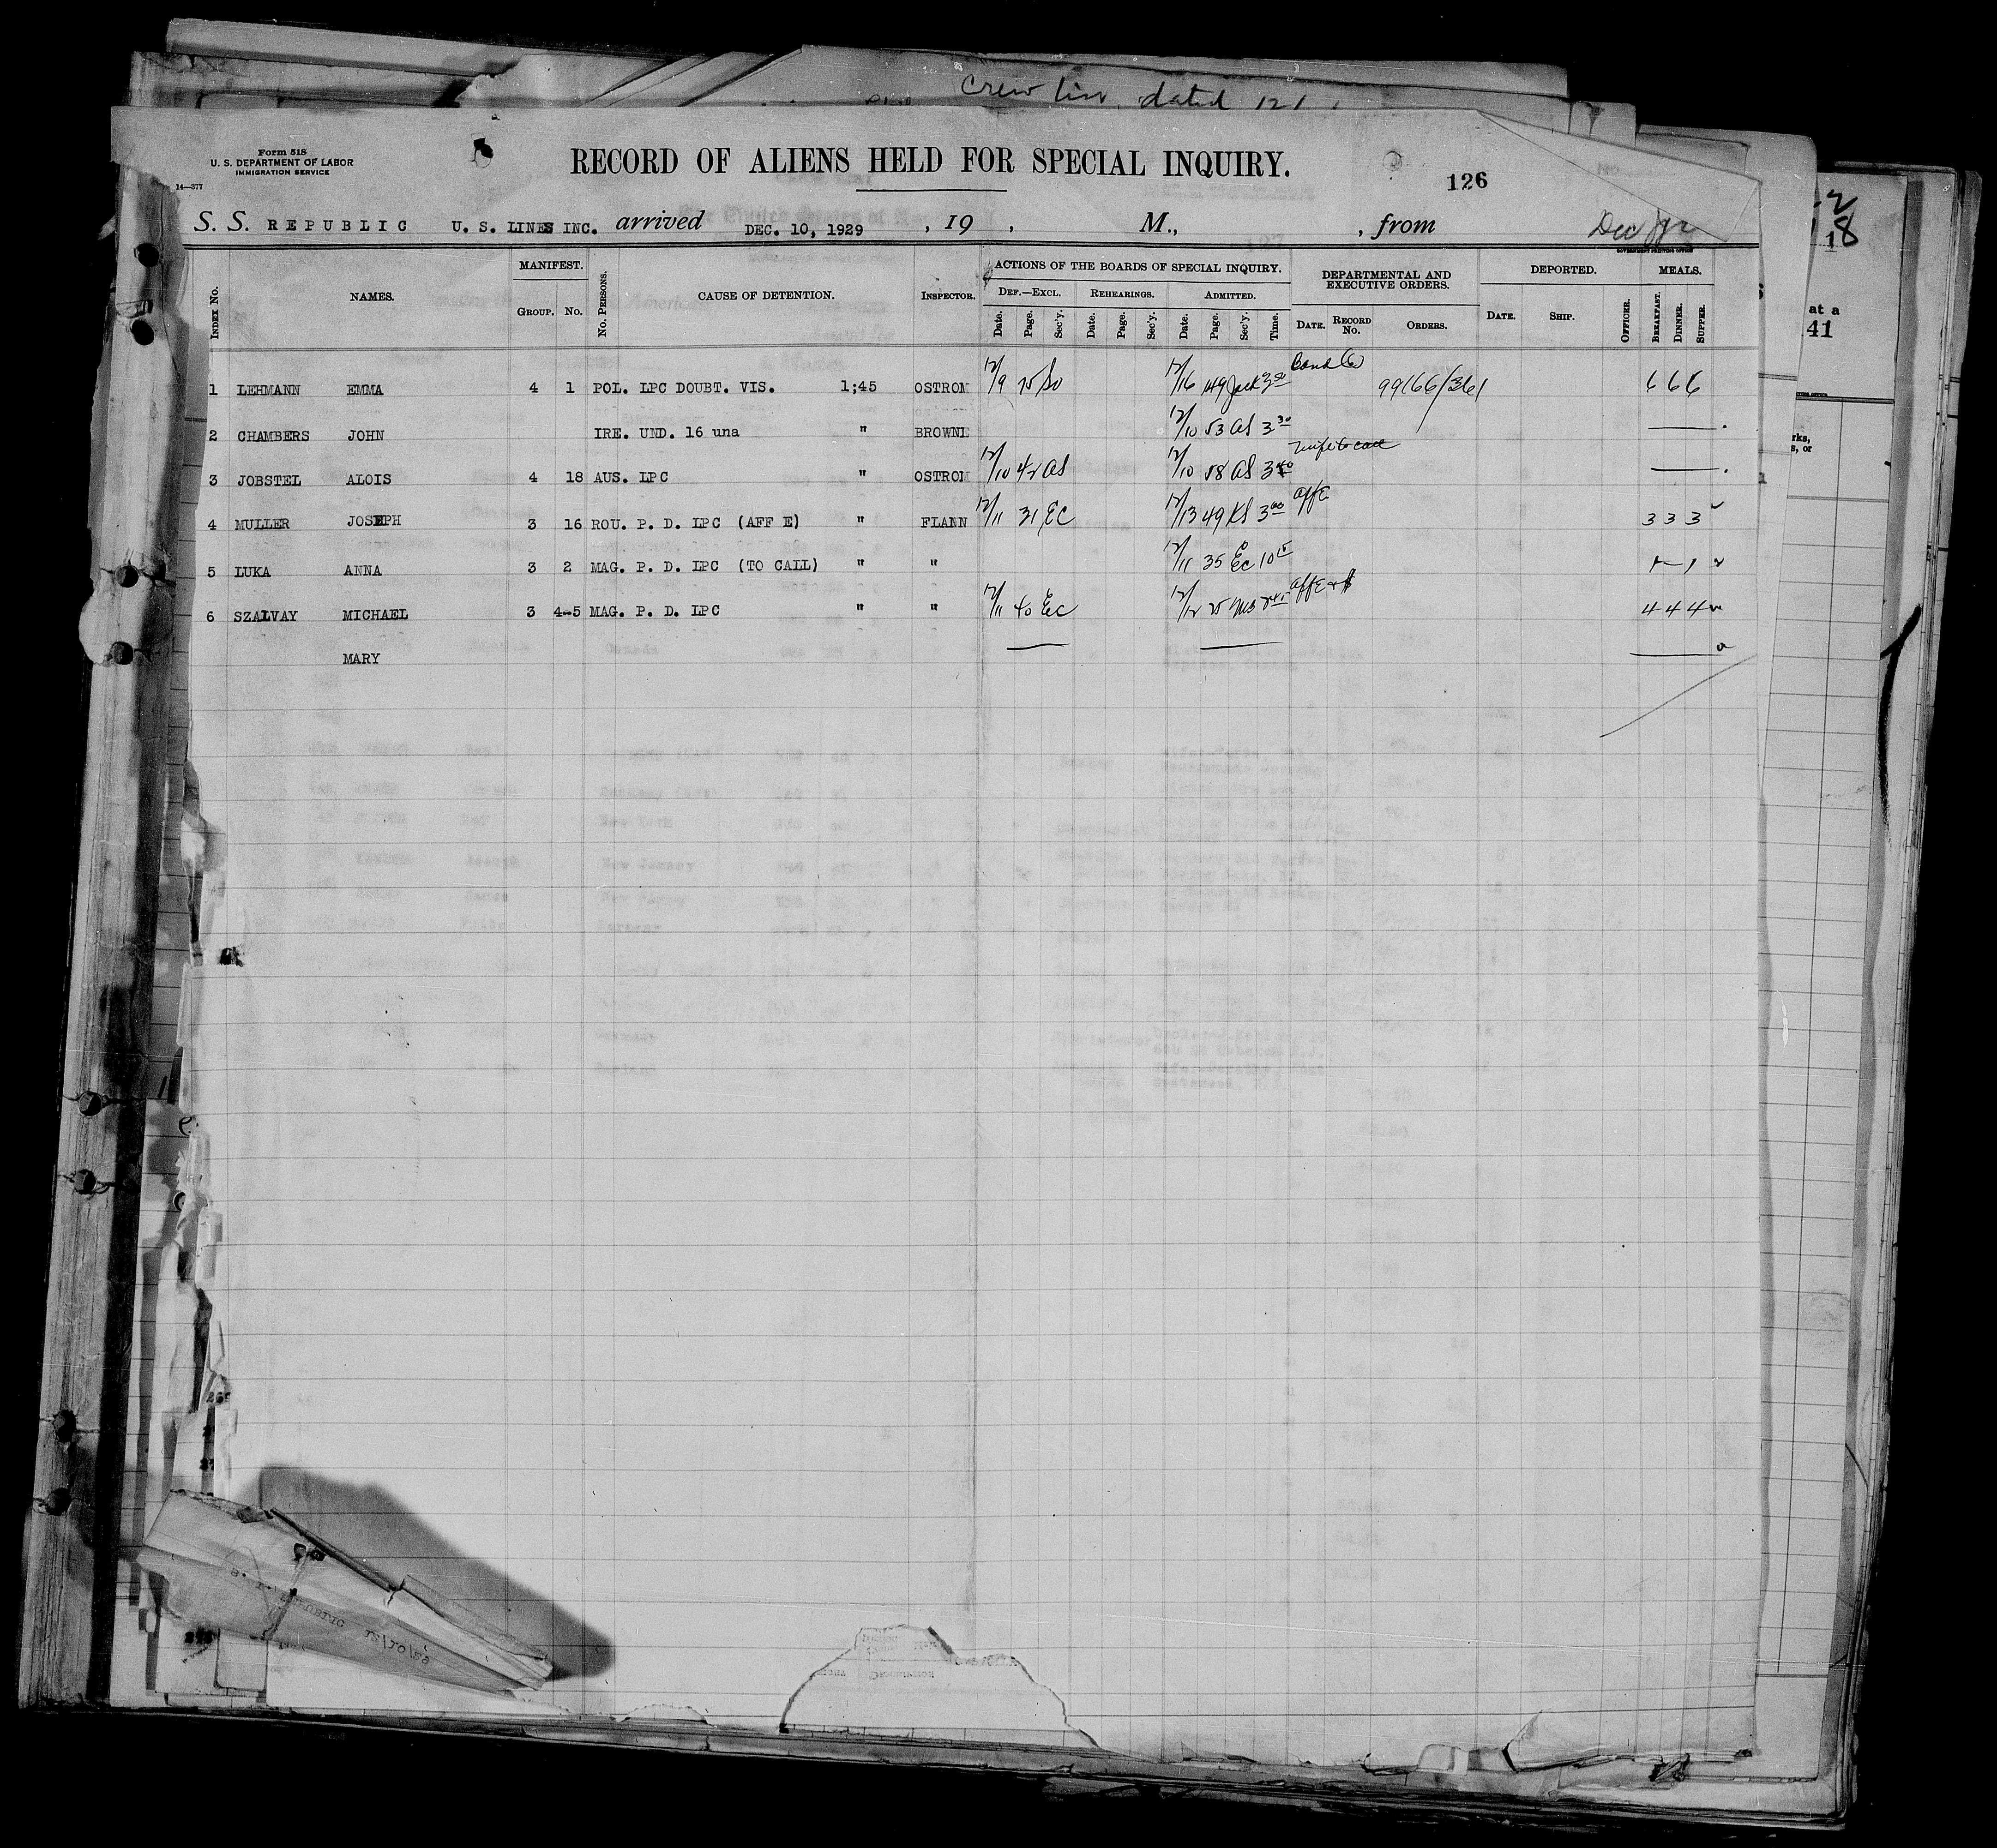 Crew list, dated 12/
Form 518
U. S. DEPARTMENT OF LABOR
IMMIGRATION SERVICE
14—377
RECORD OF ALIENS HELD FOR SPECIAL INQUIRY.
126
S. S. REPUBLIC U. S. LINES INC. arrived DEC. 10, 1929 , 19 , M., , from
INDEX No. NAMES. MANIFEST. GROUP. No. No. PERSONS. CAUSE OF DETENTION. INSPECTOR. ACTIONS OF THE BOARDS OF SPECIAL INQUIRY. DEPARTMENTAL AND EXECUTIVE ORDERS. DEPORTED. MEALS.
DEF.—EXCL. REHEARINGS. ADMITTED.
Date. Page. Sec'y. Date. Page. Sec'y. Date. Page. Sec'y. Time. DATE. RECORD No. ORDERS. DATE. SHIP. OFFICER. BREAKFAST. DINNER. SUPPER.
GOVERNMENT PRINTING OFFICE
1 LEHMANN EMMA 4 1 POL. LPC DOUBT. VIS. 1;45 OSTROM 12/9 12/16 49 Bond 99166/361 6 6 6
2 CHAMBERS JOHN IRE. UND. 16 una " BROWNE 12/10 53 AS 3 30
3 JOBSTEL ALOIS 4 18 AUS. LPC " OSTROM 12/10 42 AS 12/10 58 AS 3 40
4 MULLER JOSEPH 3 16 ROU. P. D. LPC (AFF E) " FLANN 12/11 31 EC 12/13 49 KS 3 00 aff E 3 3 3
5 LUKA ANNA 3 2 MAG. P. D. LPC (TO CALL) " " 12/11 35 EC 10 15
6 SZALVAY MICHAEL 3 4-5 MAG. P. D. LPC " " 12/11 40 EC 12/12 aff E + $ 4 4 4
MARY
at a
41
REPUBLIC 12/10/29